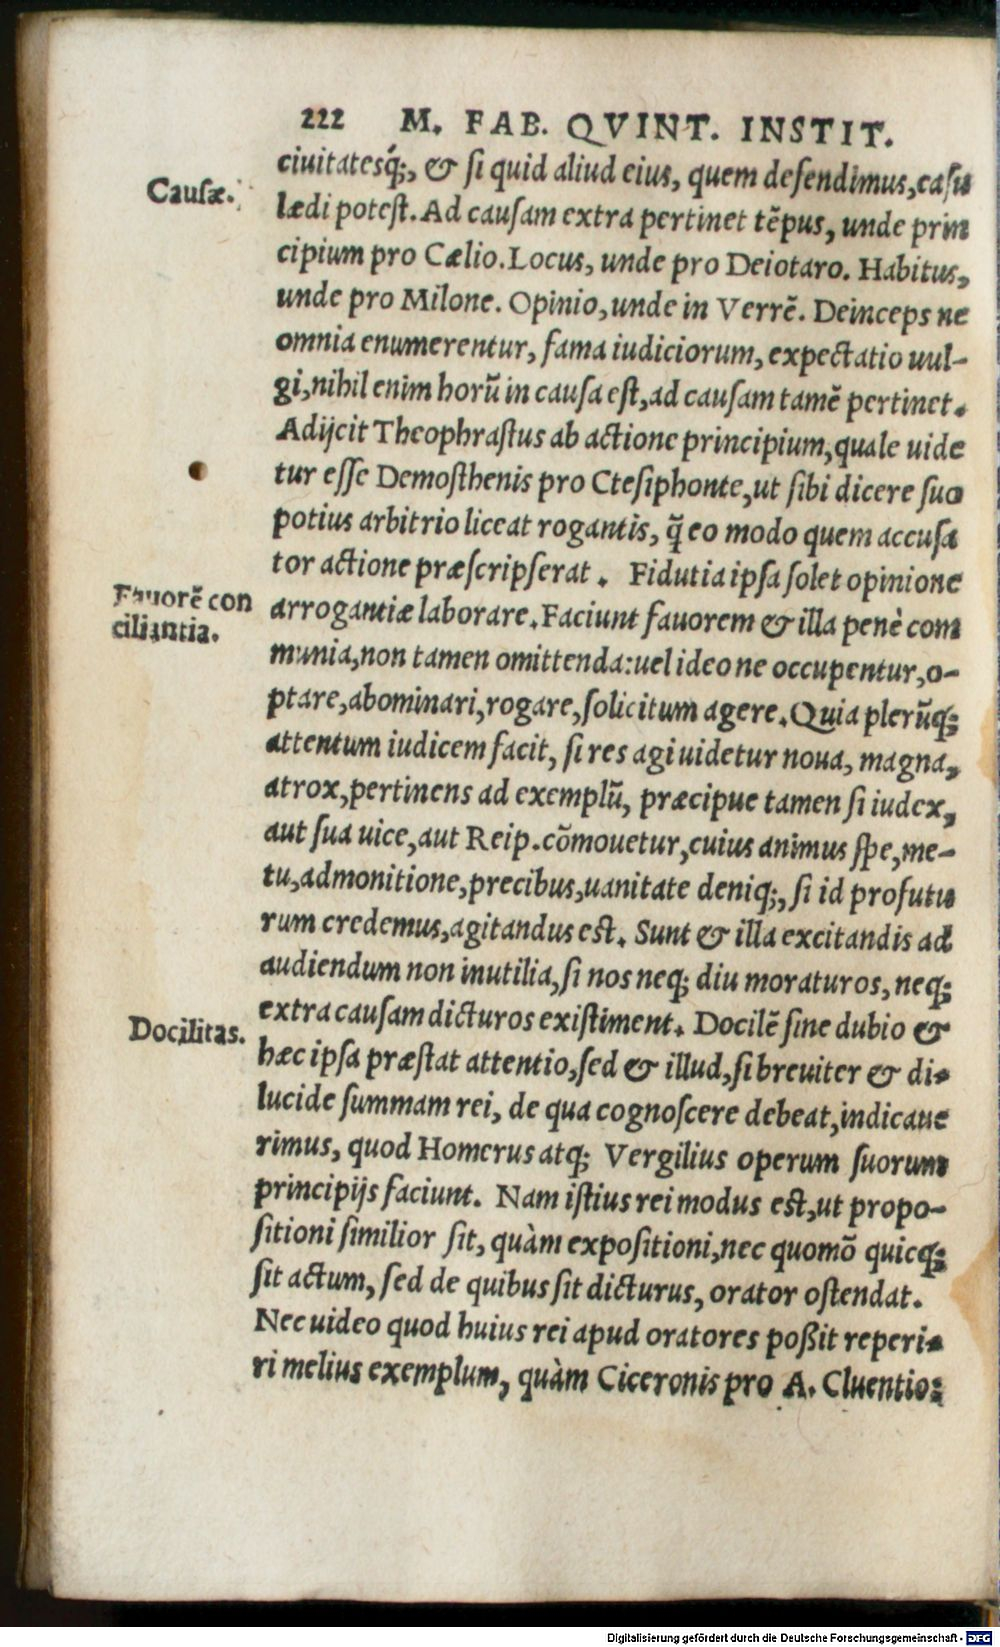 222 M. FAB. QVINT. INSTIT.
ciuitatesq́;, & ſi quid aliud eius, quem defendimus, caſu
Cauſæ.
lædi poteſt. Ad cauſam extra pertinet tẽpus, unde prin
cipium pro Cælio. Locus, unde pro Deiotaro. Habitus,
unde pro Milone. Opinio, unde in Verrẽ. Deinceps ne
omnia enumerentur, fama iudiciorum, expectatio uul-
gi, nihil enim horũ in cauſa eſt, ad cauſam tamẽ pertinet.
Adijcit Theophraſtus ab actione principium, quale uide
tur eſſe Demoſthenis pro Cteſiphonte, ut ſibi dicere ſuo
potius arbitrio liceat rogantis, q̃ eo modo quem accuſa
tor actione præſcripſerat. Fidutia ipſa ſolet opinione
Fauorẽ con
ciliantia.
arrogantiæ laborare. Faciunt fauorem & illa penè com
munia, non tamen omittenda: uel ideo ne occupentur, o-
ptare, abominari, rogare, ſolicitum agere. Quia plerũq;
attentum iudicem facit, ſi res agi uidetur noua, magna,
atrox, pertinens ad exemplũ, præcipue tamen ſi iudex,
aut ſua uice, aut Reip. cõmouetur, cuius animus ſpe, me-
tu, admonitione, precibus, uanitate deniq;, ſi id profutu
rum credemus, agitandus est. Sunt & illa excitandis ad
audiendum non inutilia, ſi nos neq; diu moraturos, neq;
extra cauſam dicturos exiſtiment. Docilẽ ſine dubio &
Docilitas.
hæc ipſa præſtat attentio, ſed & illud, ſi breuiter & di-
lucide ſummam rei, de qua cognoſcere debeat, indicaue
rimus, quod Homerus atq; Vergilius operum ſuorum
principijs faciunt. Nam iſtius rei modus est, ut propo-
ſitioni ſimilior ſit, quàm expoſitioni, nec quomõ quicq;
ſit actum, ſed de quibus ſit dicturus, orator oſtendat.
Nec uideo quod huius rei apud oratores poßit reperi-
ri melius exemplum, quàm Ciceronis pro A. Cluentio:
Digitalisierung gefördert durch die Deutsche Forschungsgemeinschaft - DFG